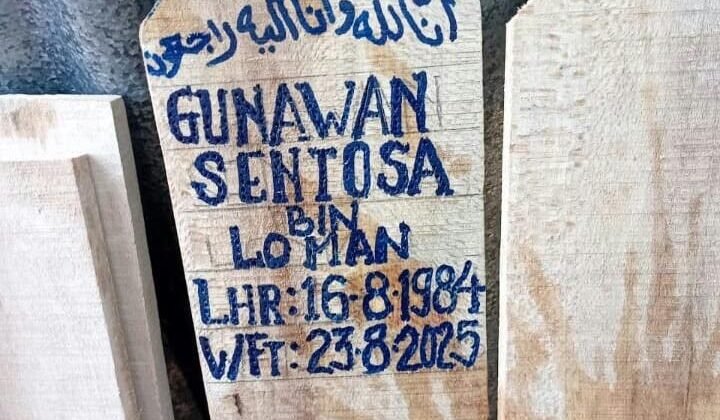 انا لله وانا اليه راجعون
GUNAWAN
SENTOSA
BIN
LOMAN
LHR:16-8-1984
W/FT:23-8-2025